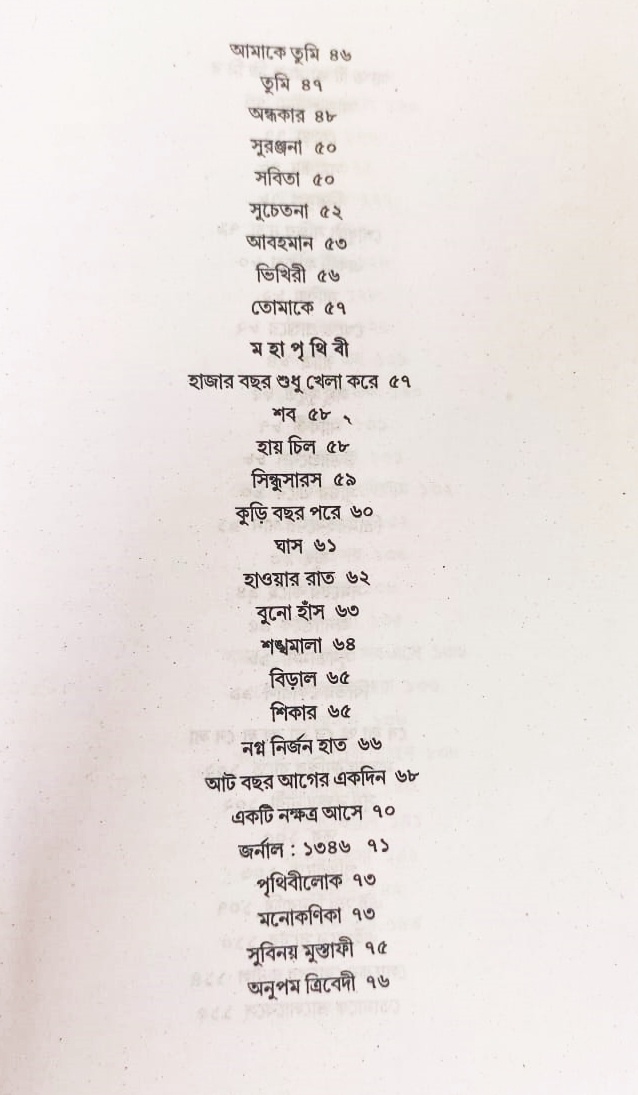 আমাকে তুমি ৪৬
তুমি ৪৭
অন্ধকার ৪৮
সুরঞ্জনা ৫০
সবিতা ৫০
সুচেতনা ৫২
আবহমান ৫৩
ভিখিরী ৫৬
তোমাকে ৫৭
ম হা পৃ থি বী
হাজার বছর শুধু খেলা করে ৫৭
শব ৫৮
হায় চিল ৫৮
সিন্ধুসারস ৫৯
কুড়ি বছর পরে ৬০
ঘাস ৬১
হাওয়ার রাত ৬২
বুনো হাঁস ৬৩
শঙ্খমালা ৬৪
বিড়াল ৬৫
শিকার ৬৫
নগ্ন নির্জন হাত ৬৬
আট বছর আগের একদিন ৬৮
একটি নক্ষত্র আসে ৭০
জর্নাল : ১৩৪৬ ৭১
পৃথিবীলোক ৭৩
মনোকণিকা ৭৩
সুবিনয় মুস্তাফী ৭৫
অনুপম ত্রিবেদী ৭৬